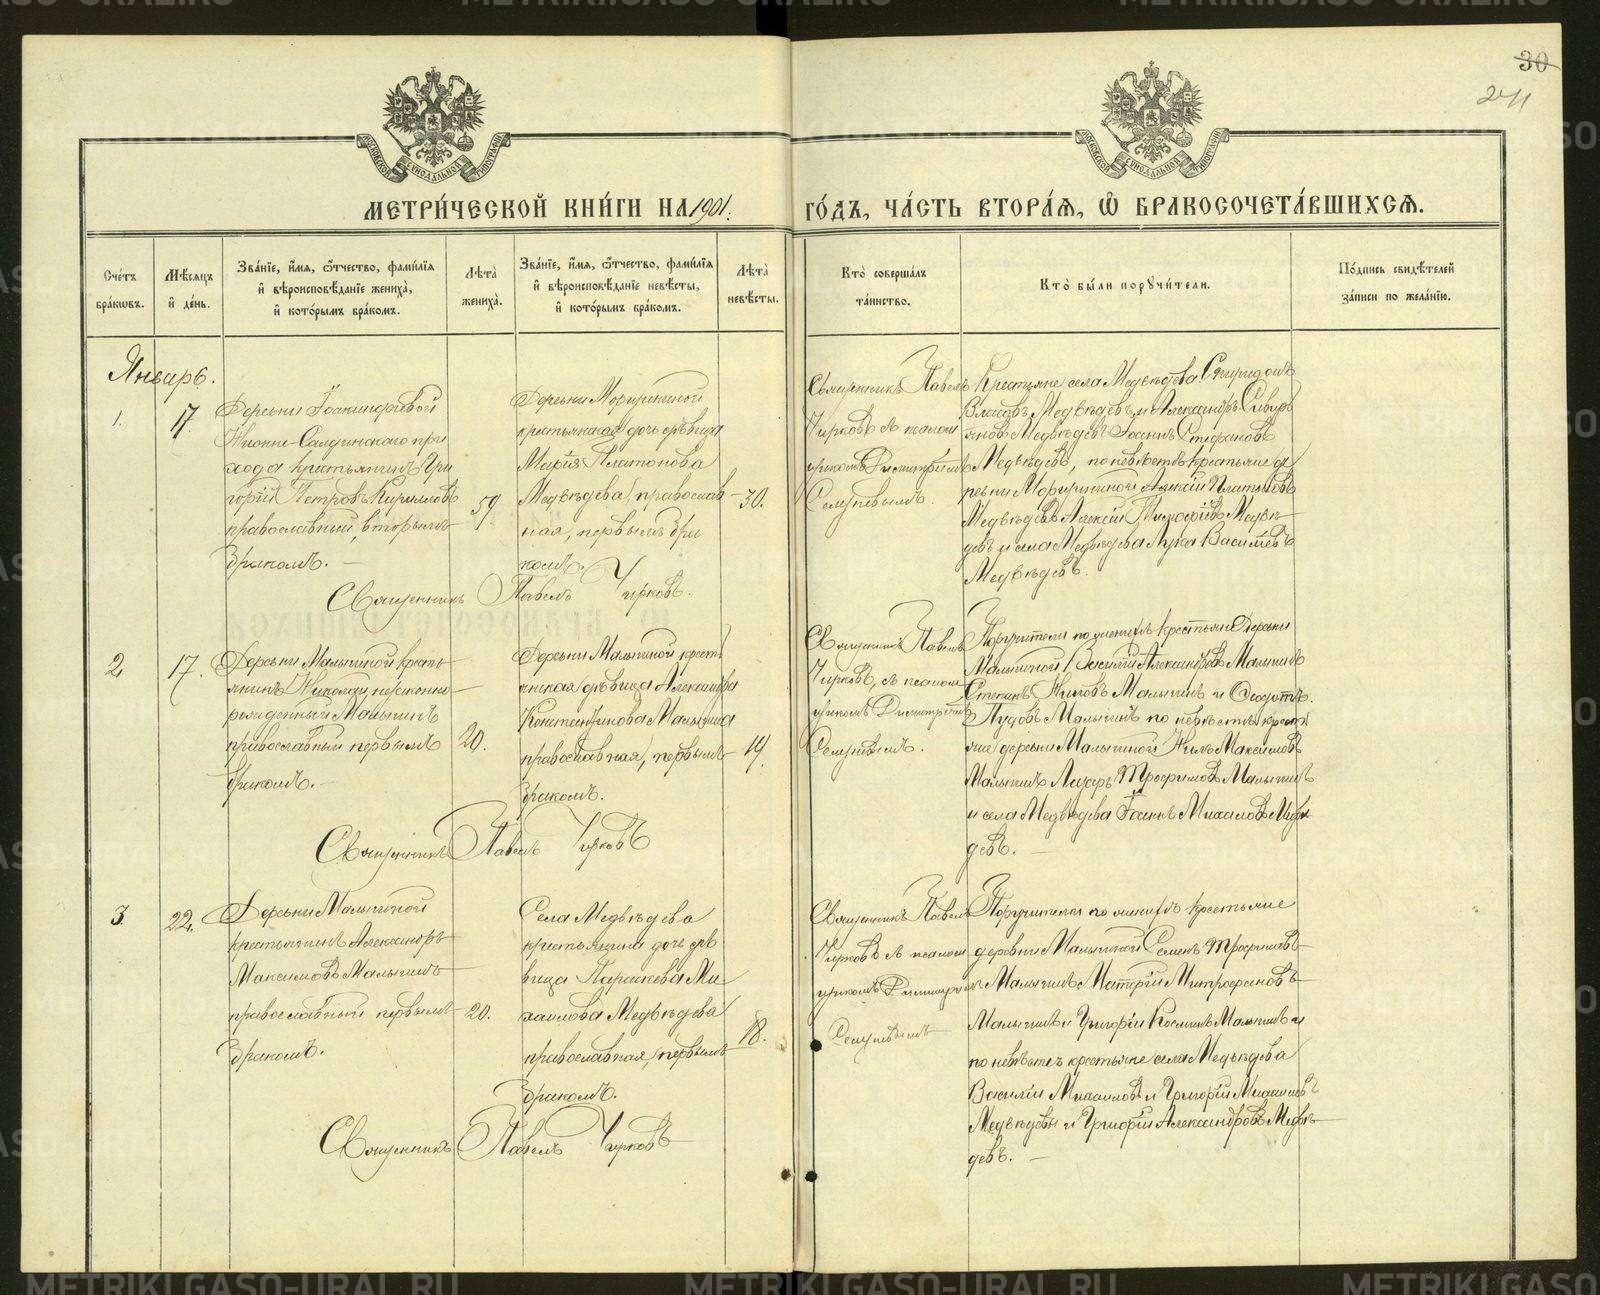 30
241
МЕТРИ́ЧЕСКОЙ КНИ́ГИ НА 1901. ГО́ДЪ, ЧА́СТЬ ВТОРА́Я, Ѡ БРАКОСОЧЕТА́ВШИХСЯ.
МОСКОВСКОЙ СѴНОДАЛЬНОЙ ТИПОГРАФІИ
МОСКОВСКОЙ СѴНОДАЛЬНОЙ ТИПОГРАФІИ
Сче́тъ бра́кѡвъ.
Мѣ́сяцъ и҆ де́нь.
Зва́нїе, и҆́мя, ѻ҆́тчество, фами́лїя и҆ вѣроисповѣ́данїе жениха̀, и҆ кото́рымъ бра́комъ.
Лѣ́та жениха̀.
Зва́нїе, и҆́мя, ѻ҆́тчество, фами́лїя и҆ вѣроисповѣ́данїе невѣ́сты, и҆ кото́рымъ бра́комъ.
Лѣ́та невѣ́сты.
Кто̀ соверша́лъ та́инство.
Кто̀ бы́ли поручи́тели.
По́дпись свидѣ́телей за́писи по жела́нїю.
Январь.
1.
17.
Деревни
Нижне-Салдинскаго при
хода крестьянинъ Гри
горій Петровъ Кирилловъ
православный, вторымъ
бракомъ. —
59.
крестьянская дочь дѣвица
Марія Платонова
Медвѣдева, православ
ная, первымъ бра
комъ.
30.
Священникъ Павелъ Чирковъ.
Священникъ Павелъ
Чирковъ съ псалом
щикомъ Димитріемъ
Крестьяне села Медвѣдева Спиридонъ
Власовъ Медвѣдевъ, и Александръ
Медвѣдевъ Іоаннъ Стефановъ
Медвѣдевъ, по невѣстѣ крестьяне де
ревни Алексій Платоновъ
Медвѣдевъ Алексій Тимофѣевъ Медвѣ
девъ и села Медвѣдева Лука Васильевъ
Медвѣдевъ.
2.
17.
Деревни Малыгиной кресть
янинъ Николай, незаконно-
рожденный Малыгинъ
православный первымъ
бракомъ. —
20.
Деревни Малыгиной кресть
янская дѣвица Александра
Константинова Малыгина
православная, первымъ
бракомъ.
19.
Священникъ Павелъ Чирковъ
Священникъ Павелъ
Чирковъ, съ псалом
щикомъ Димитріемъ
Поручители по женихѣ крестьяне деревни
Малыгиной Василій Александровъ Малыгинъ
Ниловъ Малыгинъ и Ѳеодотъ
Малыгинъ по невѣстѣ кресть
яне деревни Малыгиной Нилъ Максимовъ
Малыгинъ Лазарь Трофимовъ Малыгинъ
и села Медвѣдева Іоаннъ Михаловъ Медвѣ
девъ. —
3.
22.
Деревни Малыгиной
крестьянинъ Александръ
Максимовъ Малыгинъ
православный первымъ
бракомъ.
20.
Села Медвѣдева
крестьянина дочь дѣ
вица Параскева Ми
хаилова Медвѣдева
православная, первымъ
бракомъ.
18.
Священникъ Павелъ Чирковъ
Священникъ Павелъ
Чирковъ съ псалом
щикомъ Димитріемъ
Поручители по женихѣ крестьяне
деревни Малыгиной Семенъ Трофимовъ
Малыгинъ Митрофановъ
Малыгинъ и Григорій Косминъ Малыгинъ и
по невѣстѣ крестьяне села Медвѣдева
Василій Михаиловъ и Григорій Михаиловъ
Медвѣдевы и Григорій Александровъ Медвѣ
девъ. —
METRIKI.GASO-URAL.RU